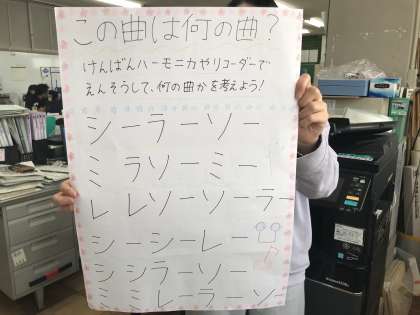 この曲は何の曲？
けんばんハーモニカやリコーダーで
えんそうして、何の曲かを考えよう！
シーラーソー
ミラソーミー
レレソーソーラー
シーシーレー
シシラーソー
ミミレーラーソー